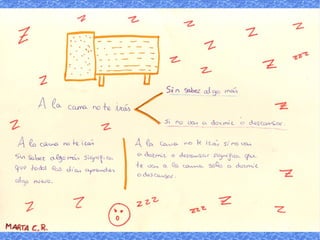 Sin saber algo más
A la cama no te irás
Si no vas a dormir o descansar.
A la cama no te irás
sin saber algo más significa
que todos los días aprendes
algo nuevo.
A la cama no te irás si no vas
a dormir o descansar significa que
te vas a la cama solo a dormir
o descansar.
MARTA C.R.